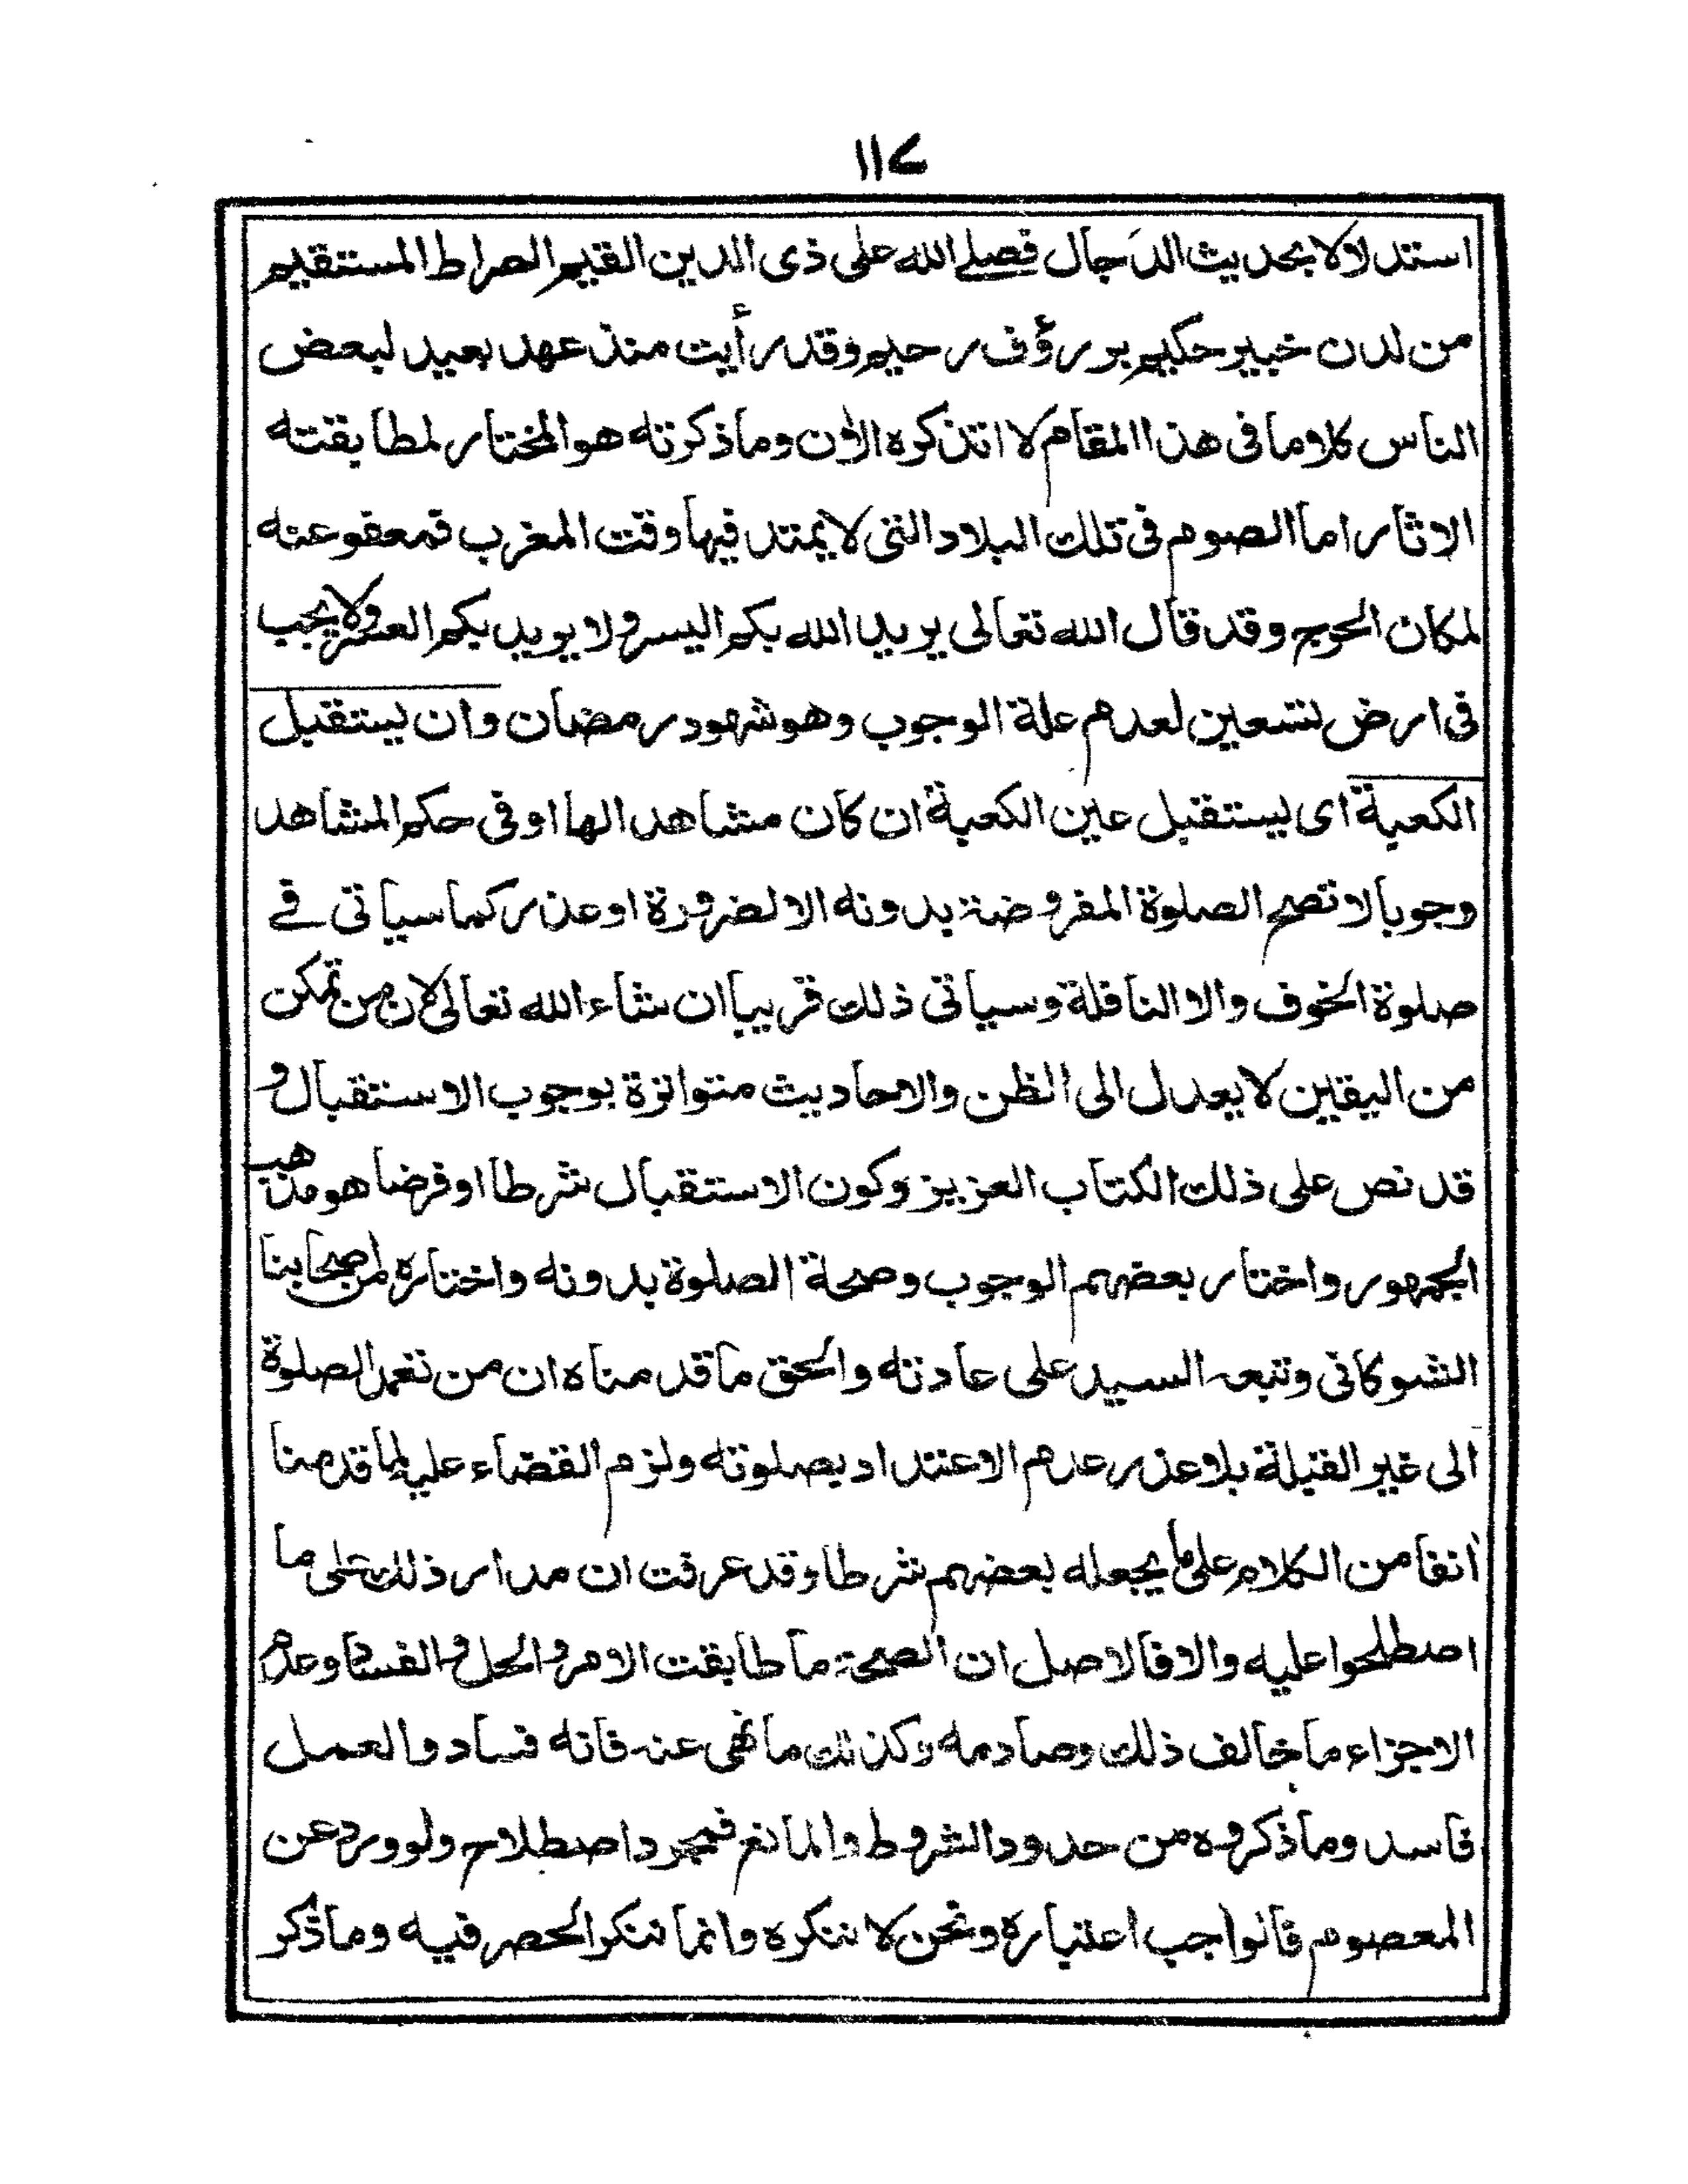 ١١٧
استدلالا بحديث الدجال فصلى الله على ذى الدين القيم الصراط المستقيم
من لدن خبير حكيم بر رؤف رحيم وقد رأيت منذ عهد بعيد لبعض
الناس كلاما فى هذا المقام لا اتذكره الاٰن وما ذكرته هو المختار لمطابقته
الاثار اما الصوم فى تلك البلاد التى لا يمتد فيها وقت المغرب فمعفو عنه
لمكان الحرج وقد قال الله تعالى يريد الله بكم اليسر ولا يريد بكم العسر ولا يجب
فى ارض تسعين لعدم علة الوجوب وهو شهود رمضان وان يستقبل
الكعبة اى يستقبل عين الكعبة ان كان مشاهدا لها او فى حكم المشاهد
وجوبا لا تصح الصلوة المفروضة بدونه الا لضرورة او عذر كما سياتى فى
صلوة الخوف والا النافلة وسياتى ذلك قريبا ان شاء الله تعالى لان من تمكن
من اليقين لا يعدل الى الظن والاحاديث متواترة بوجوب الاستقبال و
قد نص على ذلك الكتاب العزيز وكون الاستقبال شرطا او فرضا هو مذهب
الجمهور واختار بعضهم الوجوب وصحة الصلوة بدونه واختاره من اصحابنا
الشوكانى وتبعه السيد على عادته والحق ما قدمناه ان من تعمد الصلوة
الى غير القبلة بلا عذر عدم الاعتداد بصلوته ولزم القضاء عليه لما قدمنا
اٰنفا من الكلام على ما يجعله بعضهم شرطا وقد عرفت ان مدار ذلك على ما
اصطلحوا عليه والا فالاصل ان الصحة ما طابقت الامر والحل والفساد وعدم
الاجزاء ما خالف ذلك وصادمه وكذلك ما نهى عنه فانه فساد والعمل
فاسد وما ذكروه من حدود الشروط والمانع فمجرد اصطلاح ولو ورد عن
المعصوم فالواجب اعتباره ونحن لا ننكره وانما ننكر الحصر فيه وما ذكر